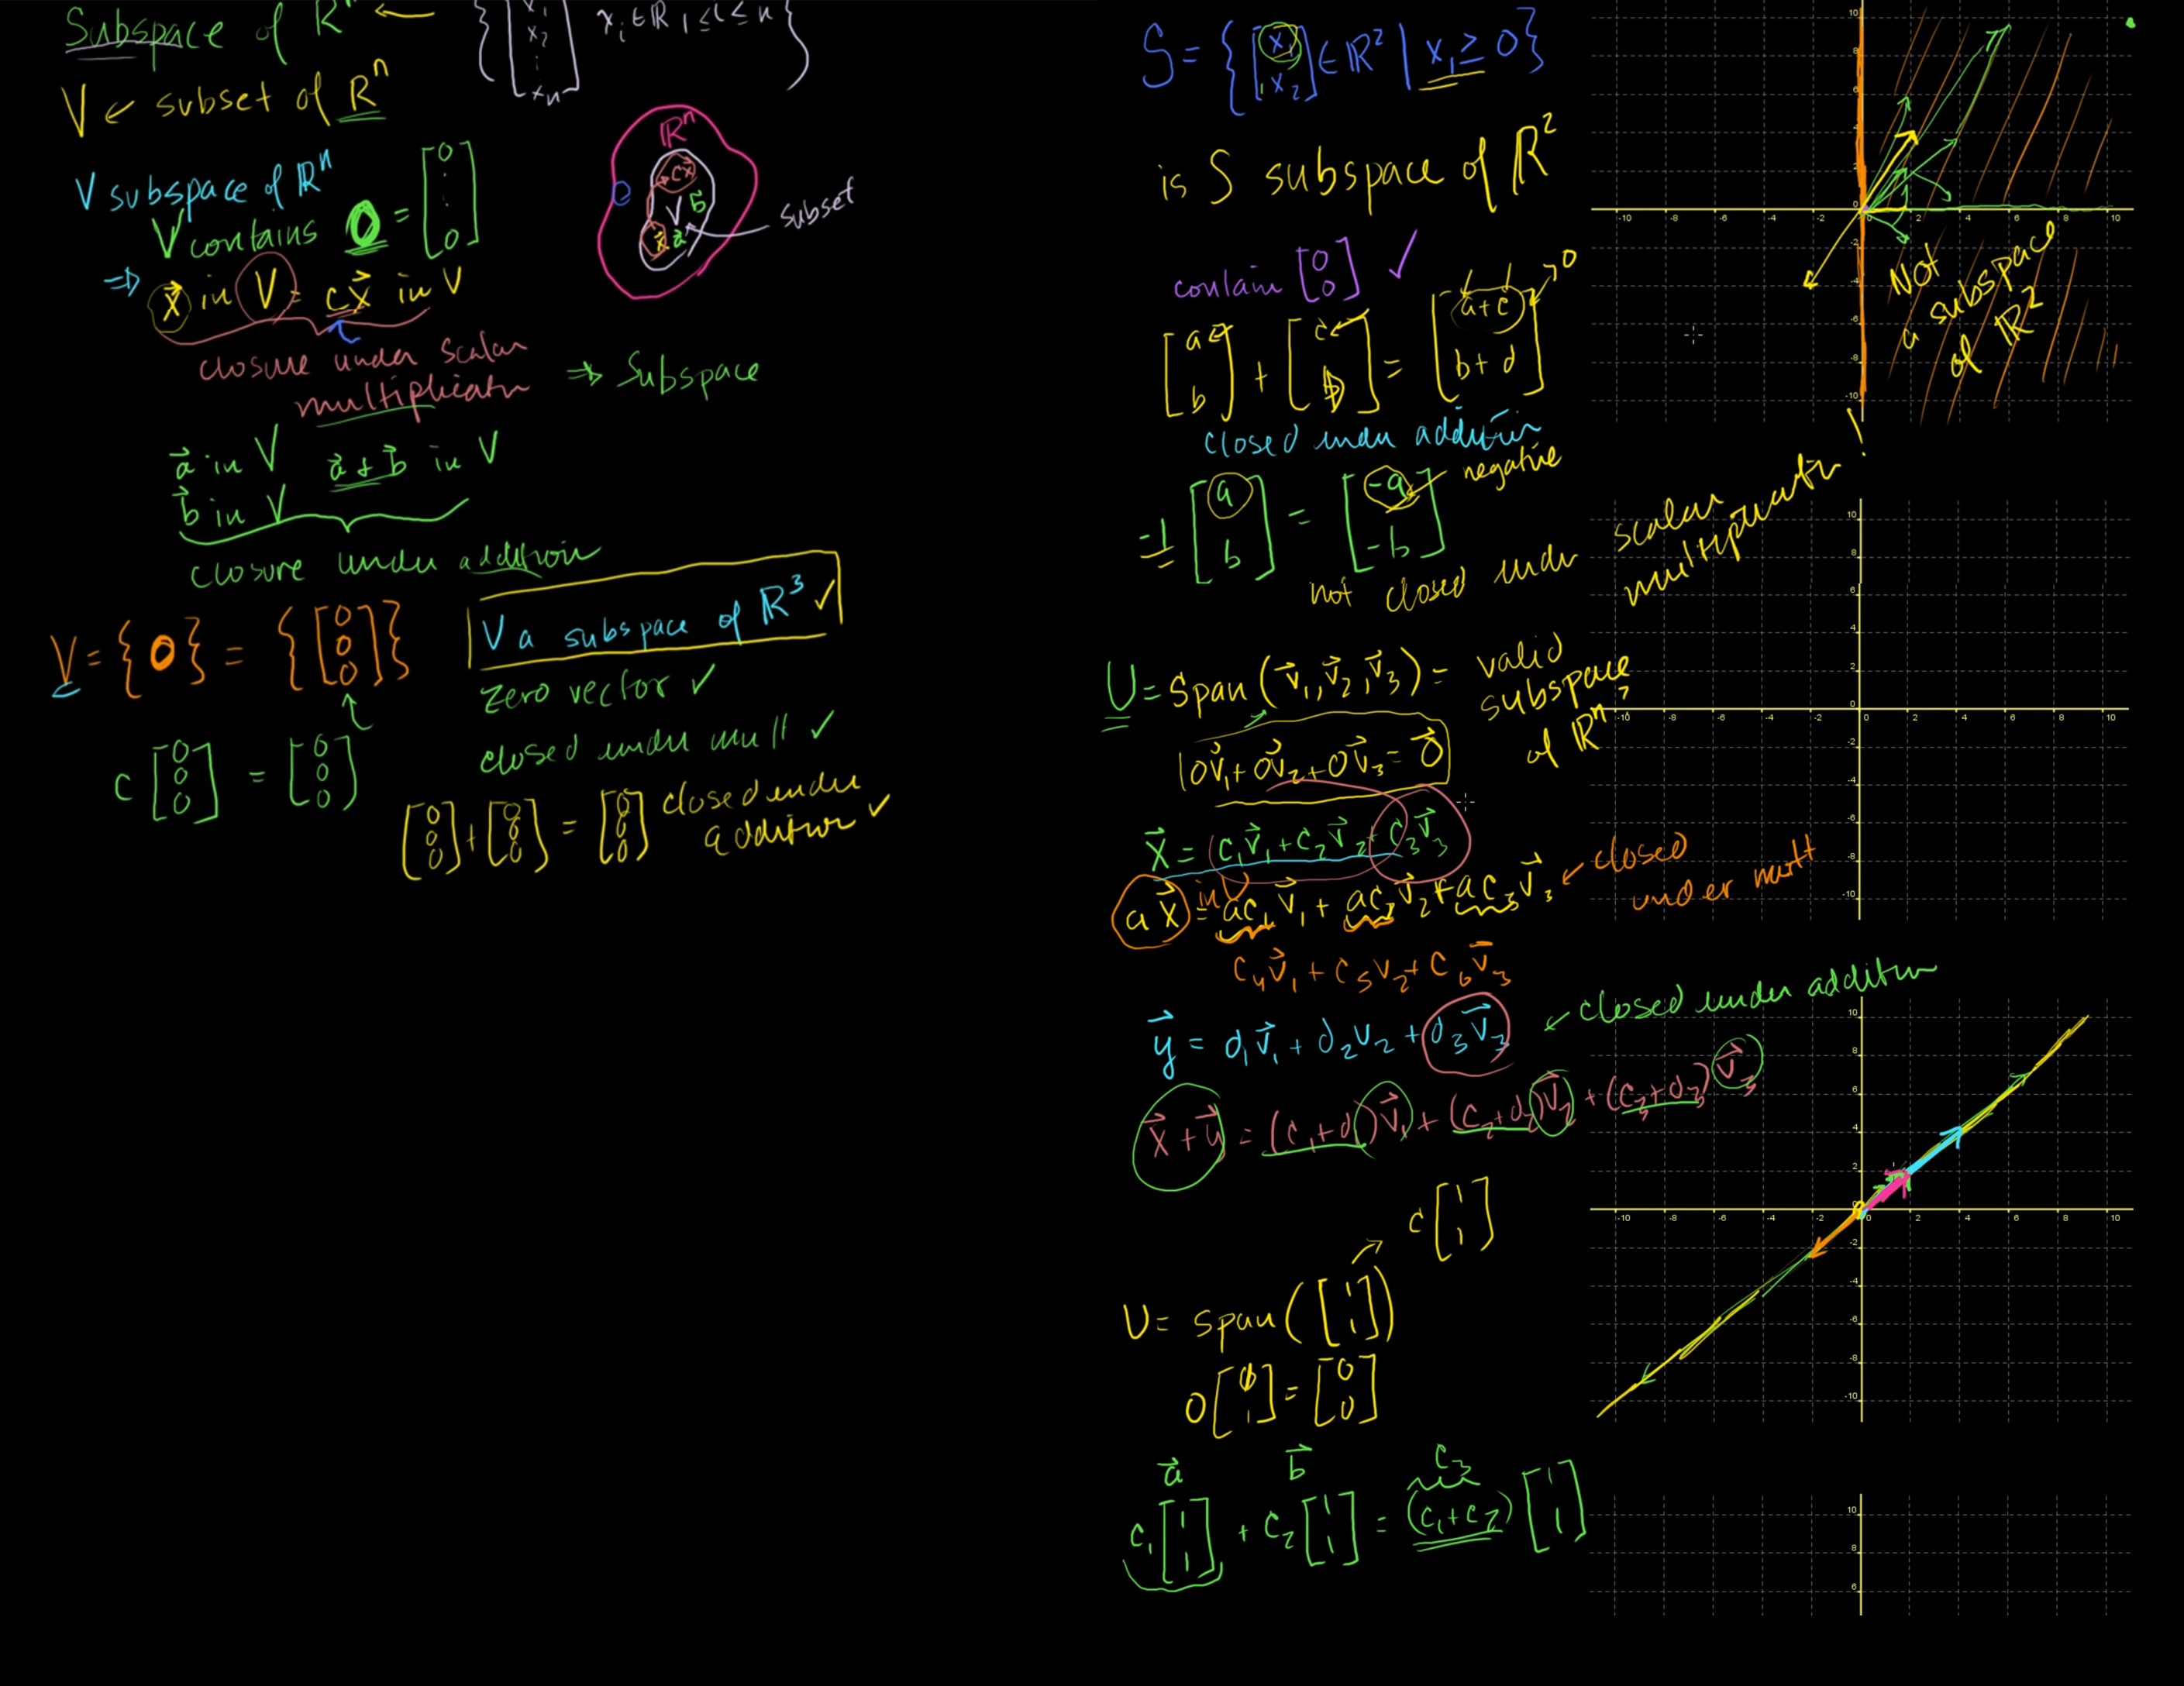 Subspace of ℝⁿ ←
{ [x₁ x₂ ⋮ xₙ] xᵢ ∈ ℝ 1 ≤ i ≤ n }
V ← subset of ℝⁿ
V subspace of ℝⁿ
V contains 0 = [0 ⋮ 0]
⇒ x⃗ in V = cx⃗ in V
closure under scalar
multiplicatn ⇒ Subspace
a⃗ in V a⃗ + b⃗ in V
b⃗ in V
closure under addition
ℝⁿ
cx⃗
V b⃗
x⃗ a⃗
subset
V = {0} = { [0 0 0] }
V a subspace of ℝ³ ✓
zero vector ✓
c [0 0 0] = [0 0 0]
closed under mult ✓
[0 0 0] + [0 0 0] = [0 0 0] closed under
addition ✓
S = { [x₁ x₂] ∈ ℝ² | x₁ ≥ 0 }
is S subspace of ℝ²
contain [0 0] ✓
[a b] + [c D] = [a+c b+d] > 0
closed under addition
-1 [a b] = [-a -b] negative
not closed under
scalar
multiplicatn !
Not
a subspace
of ℝ²
U = Span (v⃗₁, v⃗₂, v⃗₃) = valid
subspace
of ℝⁿ
0v⃗₁ + 0v⃗₂ + 0v⃗₃ = 0⃗
x⃗ = c₁v⃗₁ + c₂v⃗₂ + c₃v⃗₃
ax⃗ in U = ac₁v⃗₁ + ac₂v⃗₂ + ac₃v⃗₃ ← closed
under mult
c₄v⃗₁ + c₅v₂ + c₆v⃗₃
y⃗ = d₁v⃗₁ + d₂v₂ + d₃v⃗₃ ← closed under additin
x⃗ + y⃗ = (c₁+d₁)v⃗₁ + (c₂+d₂)v⃗₂ + (c₃+d₃)v⃗₃
c [1 1]
U = span ( [1 1] )
0 [1 1] = [0 0]
a⃗ b⃗ c₃
c₁ [1 1] + c₂ [1 1] = (c₁+c₂) [1 1]
10
8
6
4
2
-10 -8 -6 -4 -2 0 2 4 6 8 10
-2
-4
-6
-8
-10
10
8
6
4
2
-10 -8 -6 -4 -2 0 2 4 6 8 10
-2
-4
-6
-8
-10
10
8
6
4
2
-10 -8 -6 -4 -2 0 2 4 6 8 10
-2
-4
-6
-8
-10
10
8
6